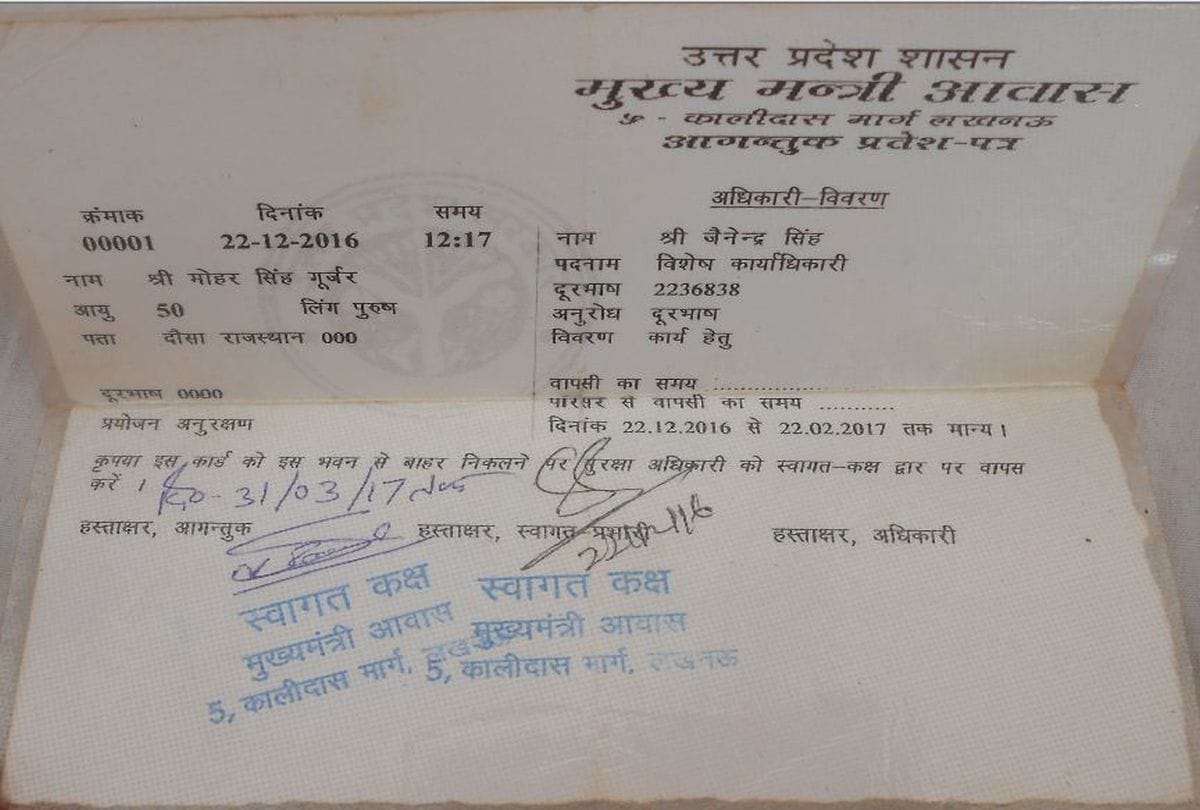 उत्तर प्रदेश शासन
मुख्य मन्त्री आवास
५ - कालीदास मार्ग लखनऊ
आगन्तुक प्रवेश-पत्र
क्रंमाक दिनांक समय
00001 22-12-2016 12:17
नाम श्री मोहर सिंह गूर्जर
आयु 50 लिंग पुरुष
पता दौसा राजस्थान 000
दूरभाष 0000
प्रयोजन अनुरक्षण
अधिकारी-विवरण
नाम श्री जैनेन्द्र सिंह
पदनाम विशेष कार्याधिकारी
दूरभाष 2236838
अनुरोध दूरभाष
विवरण कार्य हेतु
वापसी का समय ...............
परिसर से वापसी का समय ...........
दिनांक 22.12.2016 से 22.02.2017 तक मान्य।
कृपया इस कार्ड को इस भवन से बाहर निकलने पर सुरक्षा अधिकारी को स्वागत-कक्ष द्वार पर वापस
करें ।
31/03/17 तक
हस्ताक्षर, आगन्तुक हस्ताक्षर, स्वागत प्रभारी हस्ताक्षर, अधिकारी
स्वागत कक्ष
मुख्यमंत्री आवास
5, कालीदास मार्ग, लखनऊ
स्वागत कक्ष
मुख्यमंत्री आवास
5, कालीदास मार्ग, लखनऊ